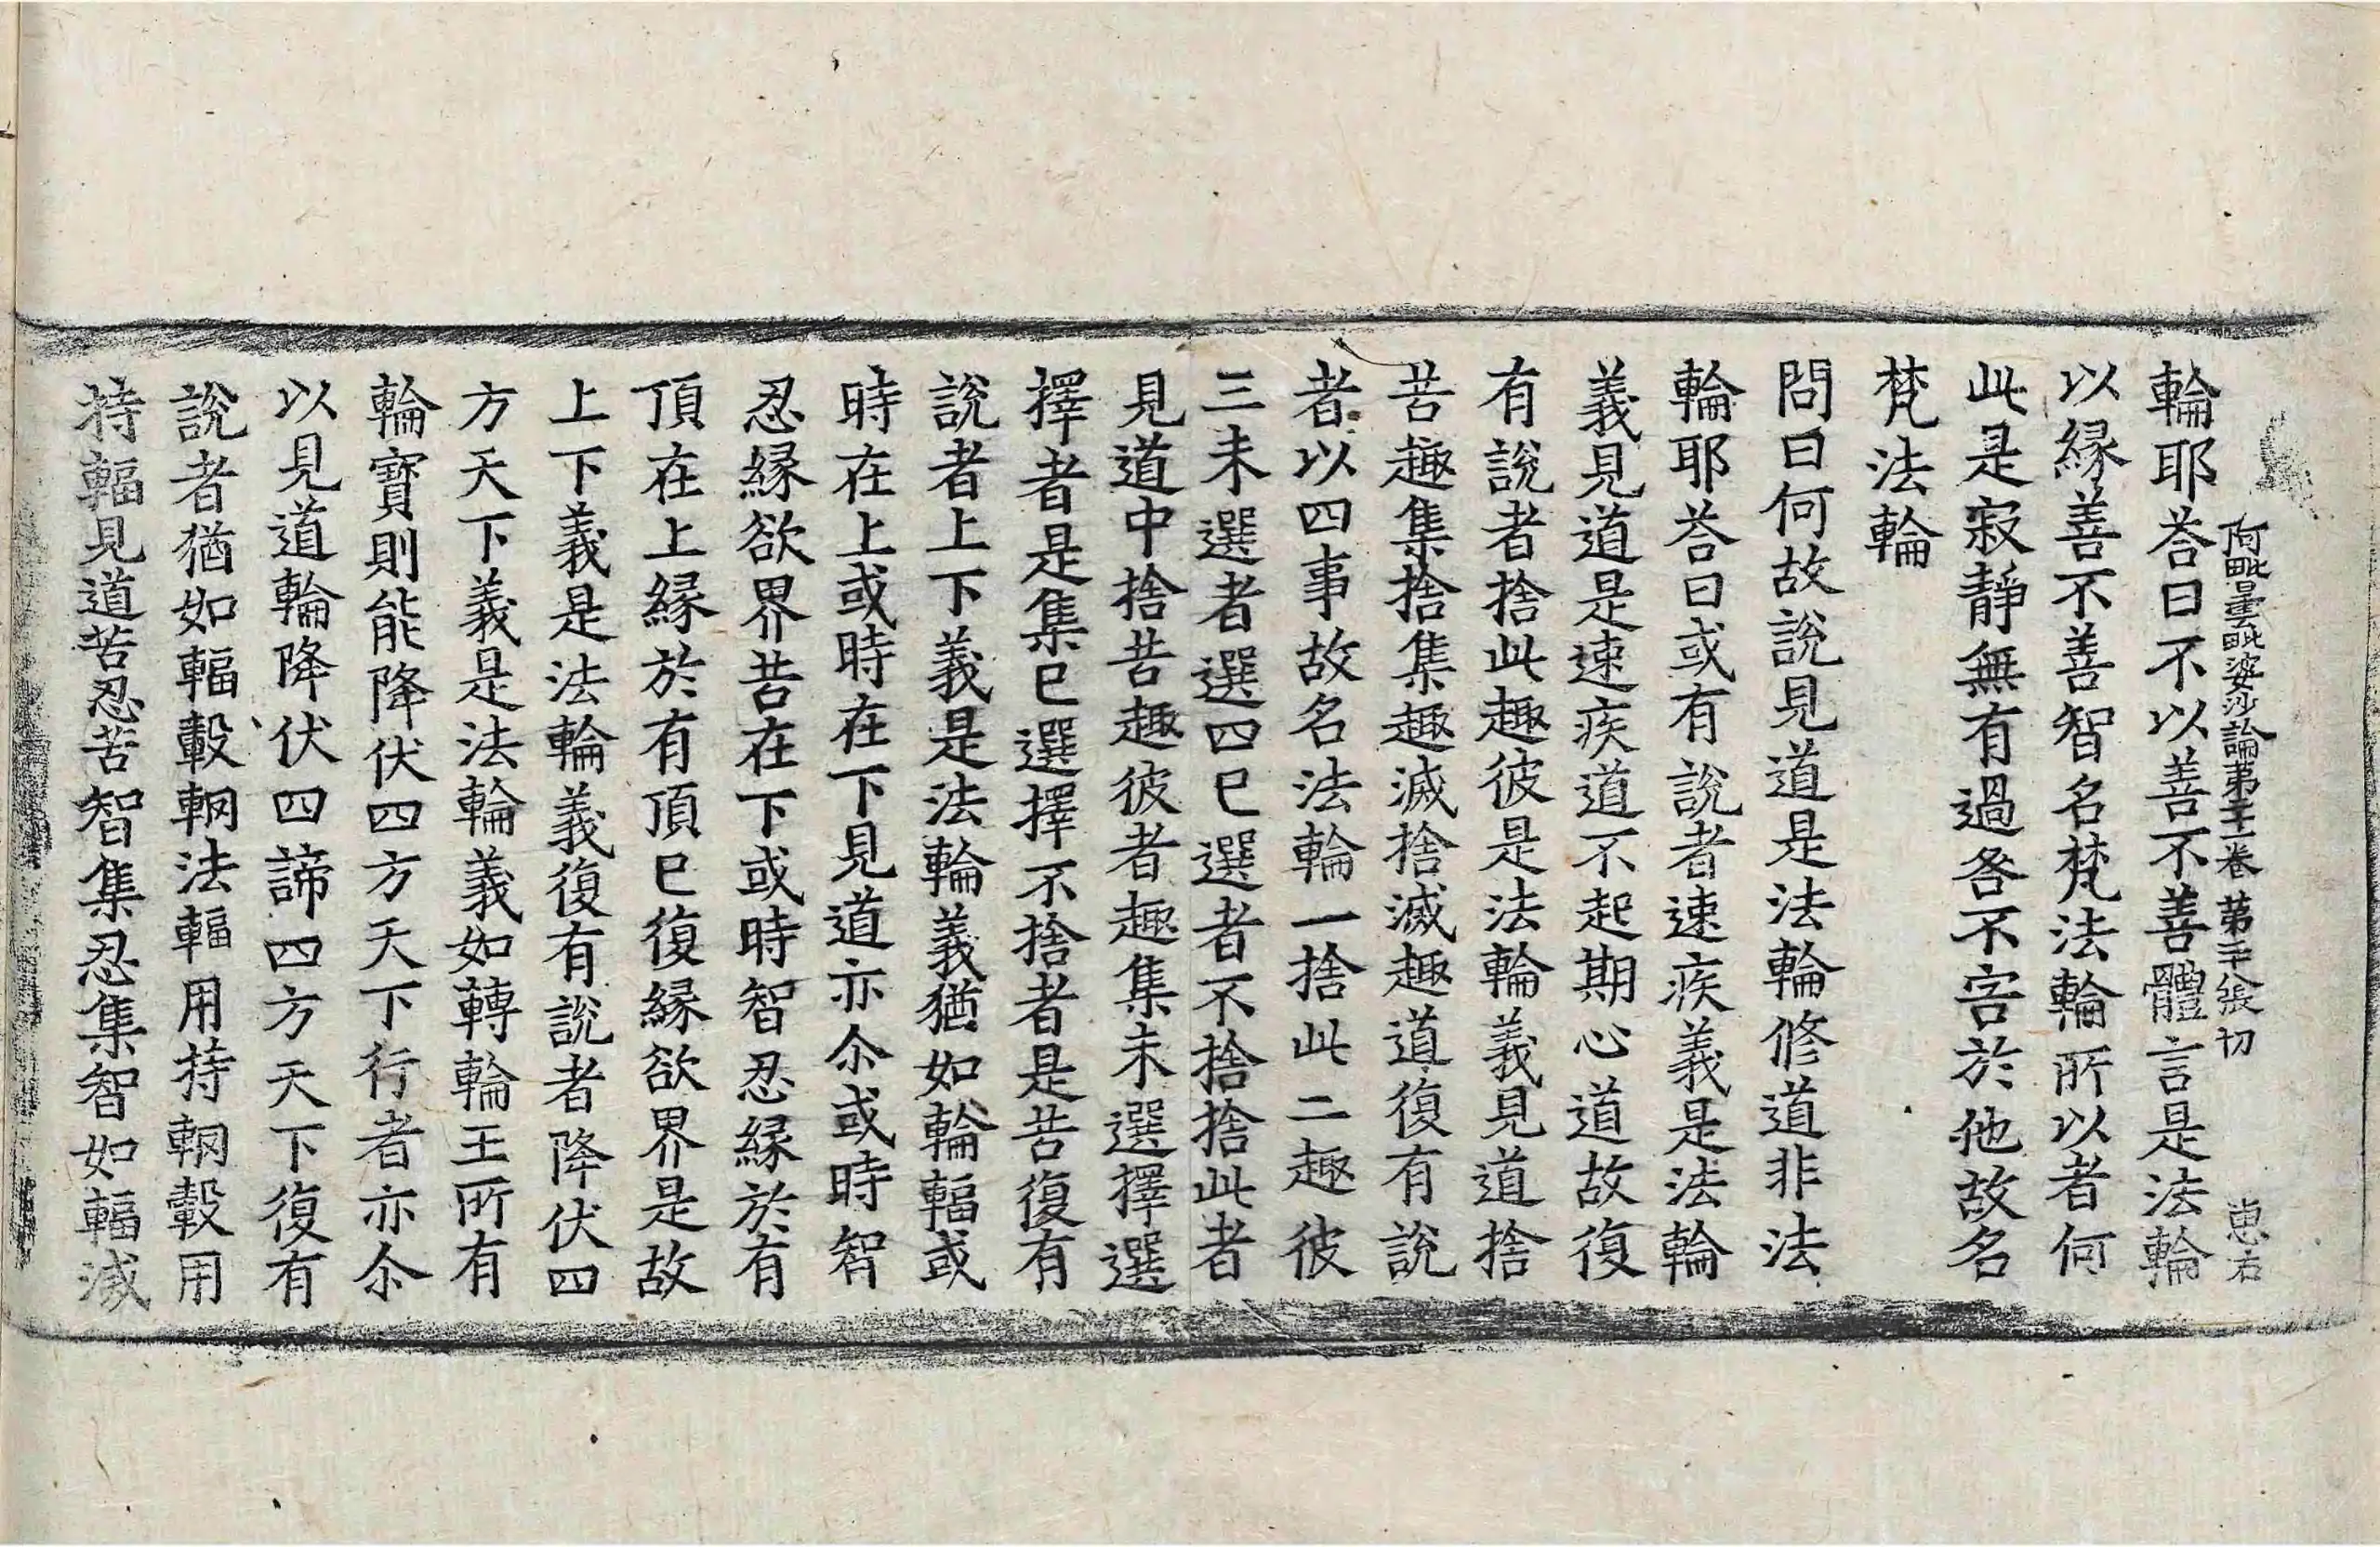 阿毗曇毗婆沙論第二十一卷　第二十張　切
輪耶荅曰不以善不善體言是法輪
以緣善不善智名梵法輪所以者何
此是寂靜無有過咎不害於他故名
梵法輪
問曰何故說見道是法輪修道非法
輪耶荅曰或有說者速疾義是法輪
義見道是速疾道不起期心道故復
有說者捨此趣彼是法輪義見道捨
苦趣集捨集趣滅捨滅趣道復有說
者以四事故名法輪一捨此二趣彼
三未選者選四已選者不捨捨此者
見道中捨苦趣彼者趣集未選擇選
擇者是集已選擇不捨者是苦復有
說者上下義是法輪義猶如輪輻或
時在上或時在下見道亦尒或時智
忍緣欲界苦在下或時智忍緣於有
頂在上緣於有頂已復緣欲界是故
上下義是法輪義復有說者降伏四
方天下義是法輪義如轉輪王所有
輪寶則能降伏四方天下行者亦尒
以見道輪降伏四諦四方天下復有
說者猶如輻轂輞法輻用持輞轂用
持輻見道苦忍苦智集忍集智如輻滅